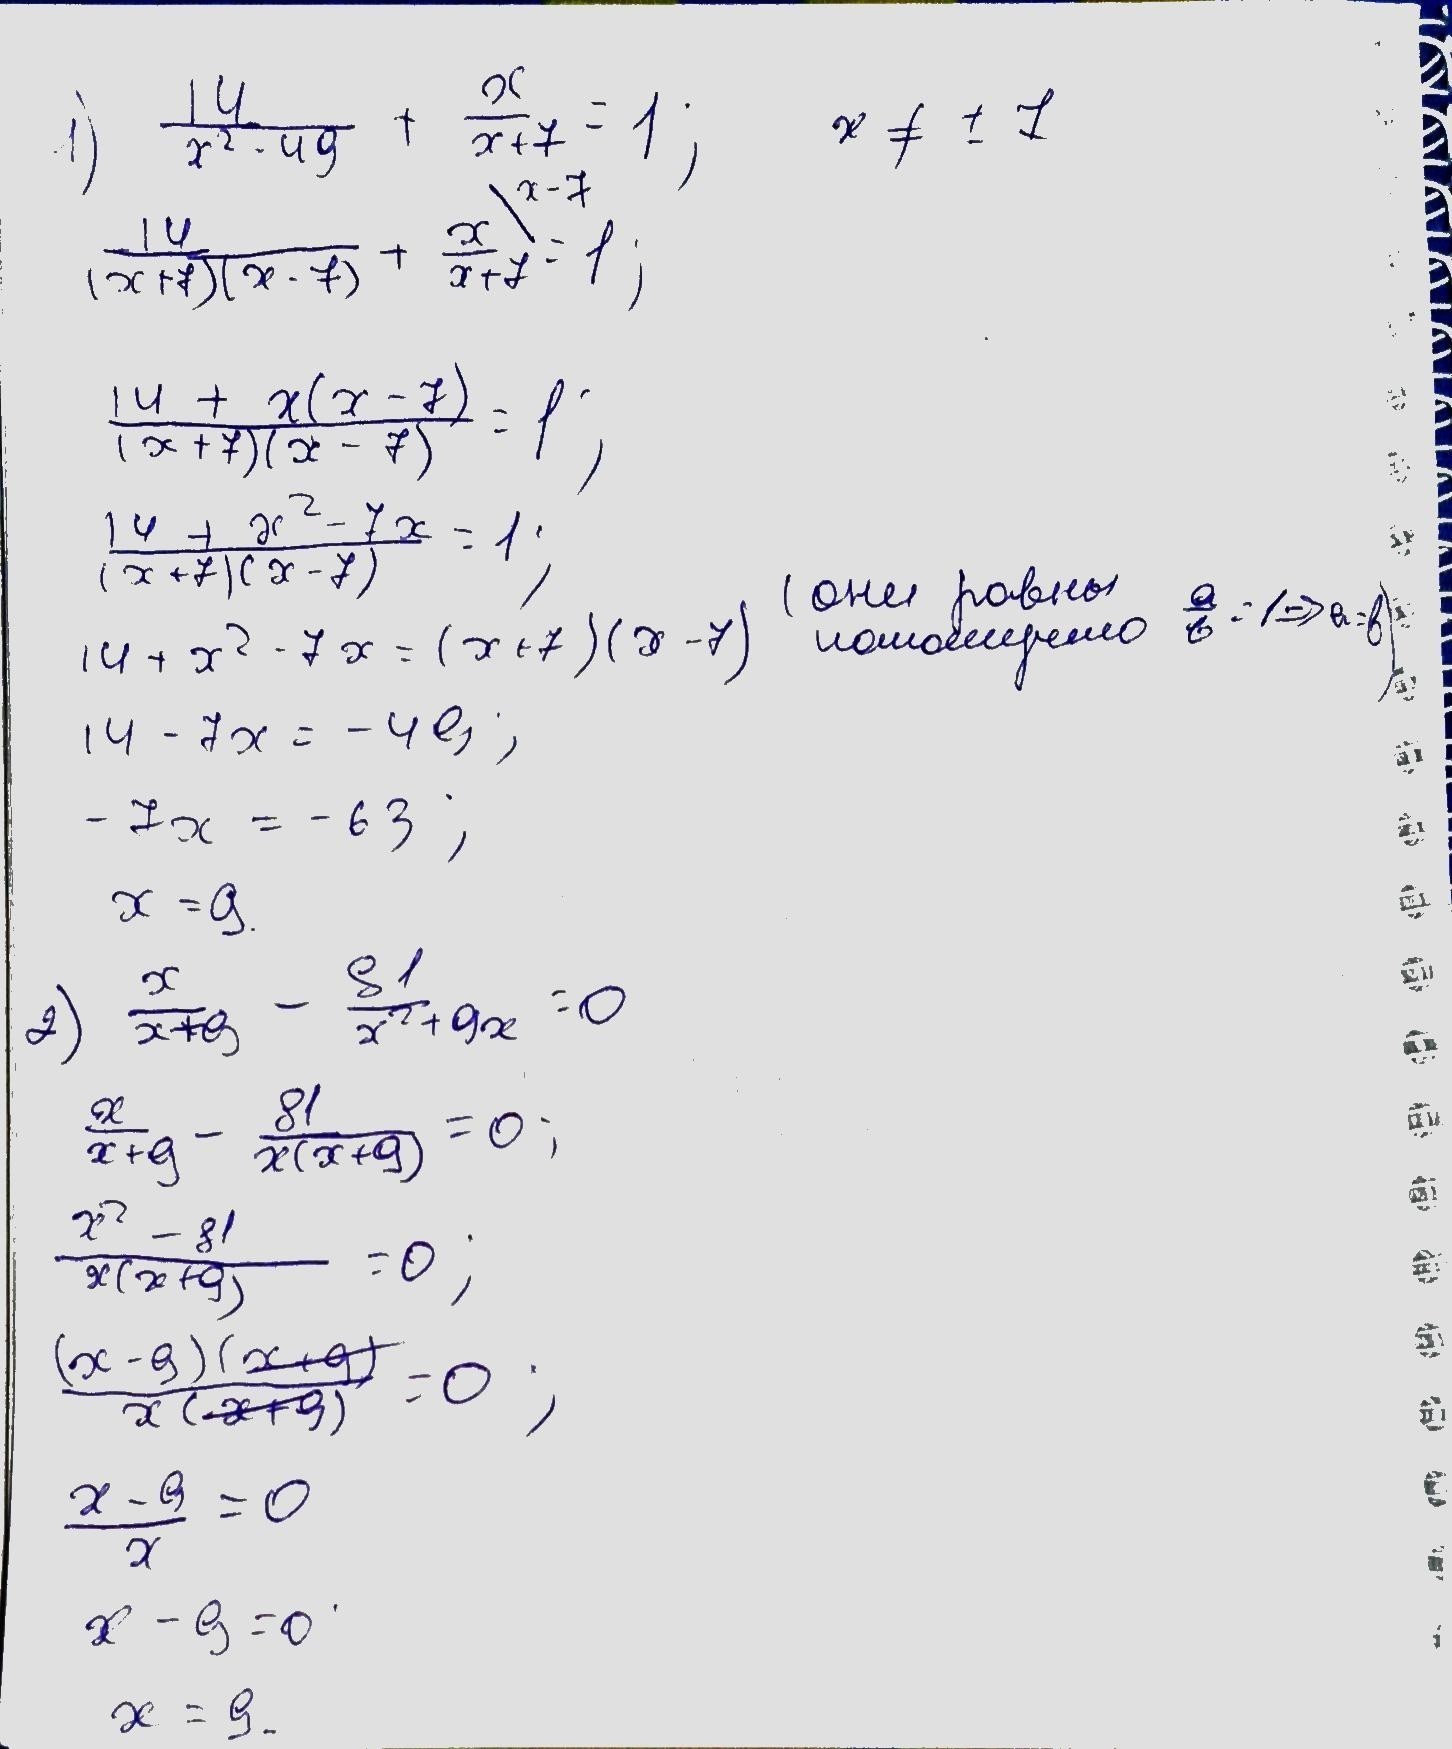 1) 14/(x² - 49) + x/(x+7) = 1; x ≠ ± 7
x-7
14/((x+7)(x-7)) + x/(x+7) = 1;
(14 + x(x-7))/((x+7)(x-7)) = 1;
(14 + x² - 7x)/((x+7)(x-7)) = 1;
14 + x² - 7x = (x+7)(x-7) (они равны a/b = 1 => a=b)
14 - 7x = -49;
-7x = -63;
x = 9.
2) x/(x+9) - 81/(x²+9x) = 0
x/(x+9) - 81/(x(x+9)) = 0;
(x² - 81)/(x(x+9)) = 0;
((x-9)(x+9))/(x(x+9)) = 0;
(x-9)/x = 0
x - 9 = 0
x = 9.